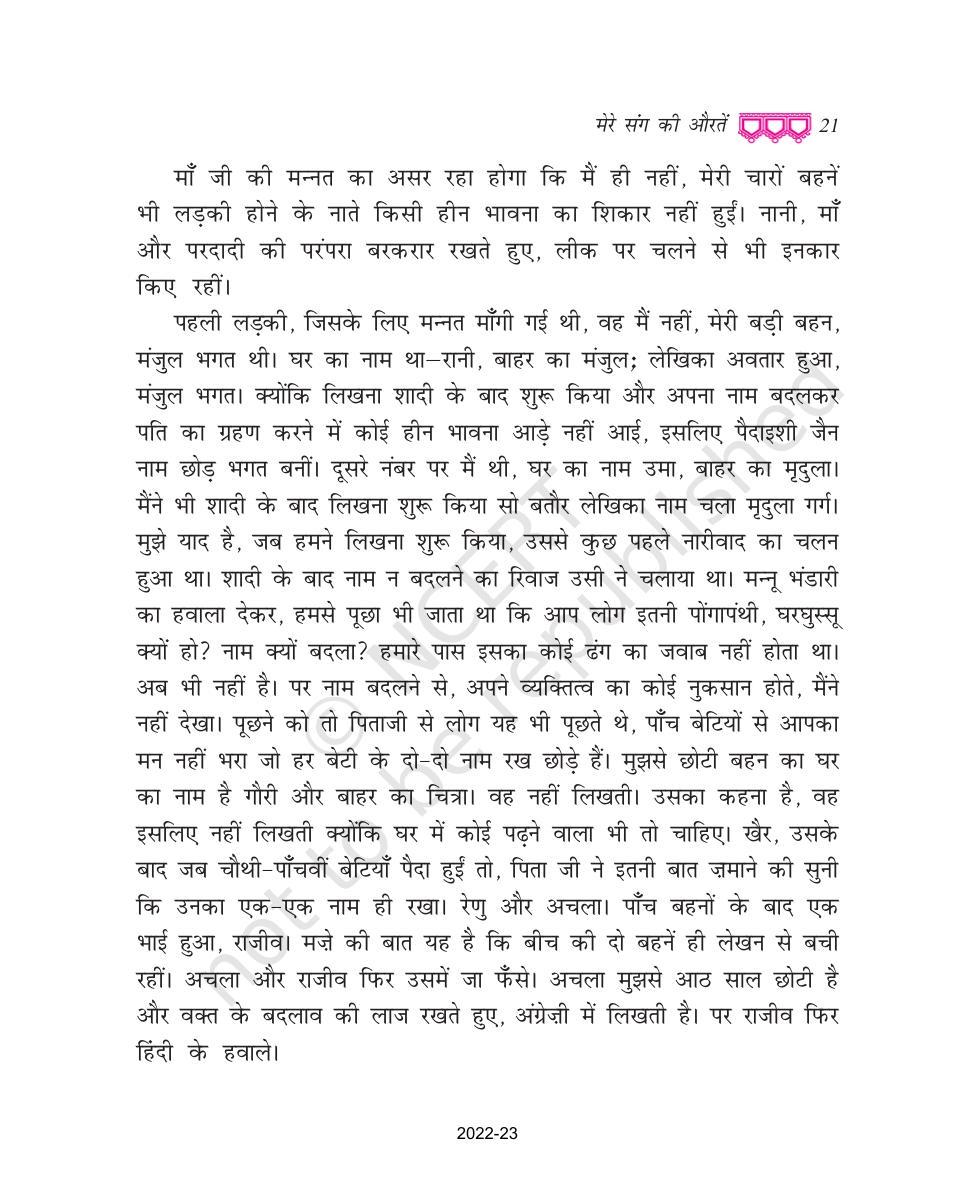 मेरे संग की औरतें 21
माँ जी की मन्नत का असर रहा होगा कि मैं ही नहीं, मेरी चारों बहनें
भी लड़की होने के नाते किसी हीन भावना का शिकार नहीं हुईं। नानी, माँ
और परदादी की परंपरा बरकरार रखते हुए, लीक पर चलने से भी इनकार
किए रहीं।
पहली लड़की, जिसके लिए मन्नत माँगी गई थी, वह मैं नहीं, मेरी बड़ी बहन,
मंजुल भगत थी। घर का नाम था–रानी, बाहर का मंजुल; लेखिका अवतार हुआ,
मंजुल भगत। क्योंकि लिखना शादी के बाद शुरू किया और अपना नाम बदलकर
पति का ग्रहण करने में कोई हीन भावना आड़े नहीं आई, इसलिए पैदाइशी जैन
नाम छोड़ भगत बनीं। दूसरे नंबर पर मैं थी, घर का नाम उमा, बाहर का मृदुला।
मैंने भी शादी के बाद लिखना शुरू किया सो बतौर लेखिका नाम चला मृदुला गर्ग।
मुझे याद है, जब हमने लिखना शुरू किया, उससे कुछ पहले नारीवाद का चलन
हुआ था। शादी के बाद नाम न बदलने का रिवाज उसी ने चलाया था। मन्नू भंडारी
का हवाला देकर, हमसे पूछा भी जाता था कि आप लोग इतनी पोंगापंथी, घरघुस्सू
क्यों हो? नाम क्यों बदला? हमारे पास इसका कोई ढंग का जवाब नहीं होता था।
अब भी नहीं है। पर नाम बदलने से, अपने व्यक्तित्व का कोई नुकसान होते, मैंने
नहीं देखा। पूछने को तो पिताजी से लोग यह भी पूछते थे, पाँच बेटियों से आपका
मन नहीं भरा जो हर बेटी के दो-दो नाम रख छोड़े हैं। मुझसे छोटी बहन का घर
का नाम है गौरी और बाहर का चित्रा। वह नहीं लिखती। उसका कहना है, वह
इसलिए नहीं लिखती क्योंकि घर में कोई पढ़ने वाला भी तो चाहिए। खैर, उसके
बाद जब चौथी-पाँचवीं बेटियाँ पैदा हुईं तो, पिता जी ने इतनी बात ज़माने की सुनी
कि उनका एक-एक नाम ही रखा। रेणु और अचला। पाँच बहनों के बाद एक
भाई हुआ, राजीव। मज़े की बात यह है कि बीच की दो बहनें ही लेखन से बची
रहीं। अचला और राजीव फिर उसमें जा फँसे। अचला मुझसे आठ साल छोटी है
और वक्त के बदलाव की लाज रखते हुए, अंग्रेज़ी में लिखती है। पर राजीव फिर
हिंदी के हवाले।
© NCERT
not to be republished
2022-23